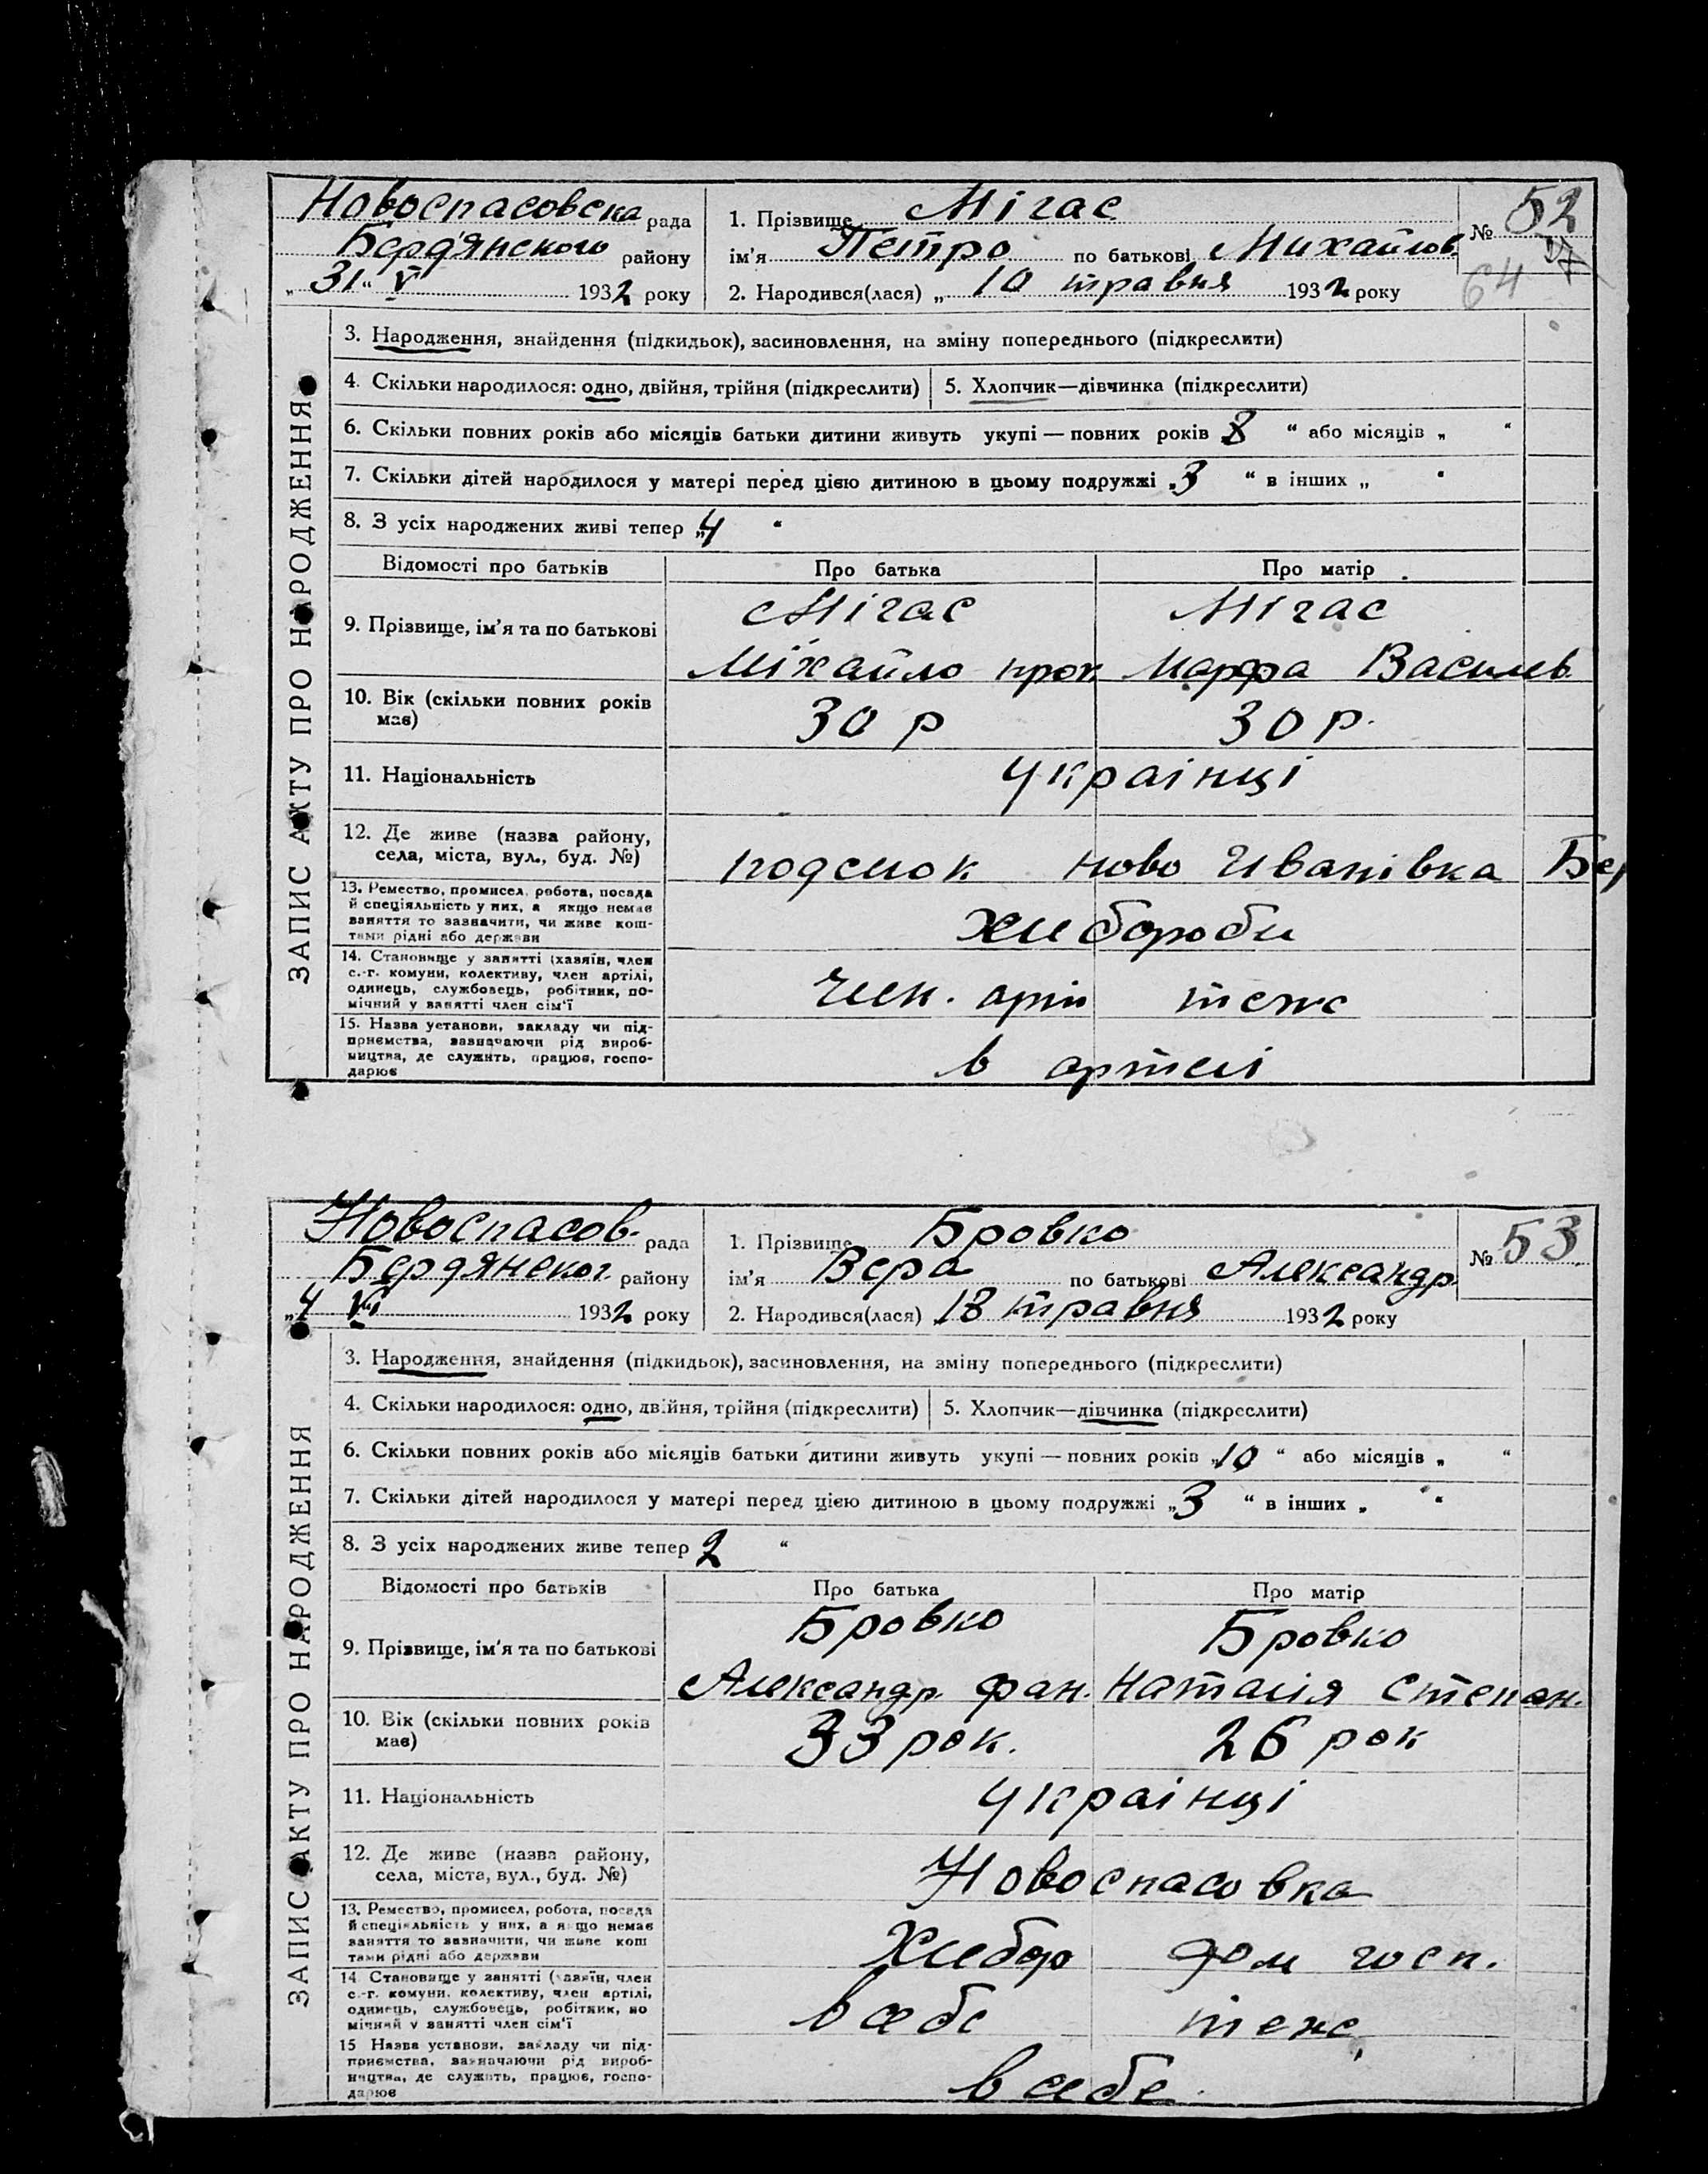 Новоспасовска рада
Бердянского району
„31“ V 1932 року
1. Прізвище Мігас
ім’я Петро по батькові Михайлов.
2. Народився(лася) „ 10 травня 1932 року
№ 52
64
ЗАПИС АКТУ ПРО НАРОДЖЕННЯ
3. Народження, знайдення (підкидьок), засиновлення, на зміну попереднього (підкреслити)
4. Скільки народилося: одно, двійня, трійня (підкреслити)
5. Хлопчик—дівчинка (підкреслити)
6. Скільки повних років або місяців батьки дитини живуть укупі — повних років „8 “ або місяців „ “
7. Скільки дітей народилося у матері перед цією дитиною в цьому подружжі „3 “ в інших „ “
8. З усіх народжених живі тепер „4 “
Відомості про батьків Про батька Про матір
9. Прізвище, ім’я та по батькові
Мігас Мігас
Міхайло прок Марфа Василев.
10. Вік (скільки повних років має)
30 р 30 р.
11. Національність
Украінці
12. Де живе (назва району,
села, міста, вул., буд. №)
подсмок Ново Иванівка Бер
13. Ремество, промисел, робота, посада
й спеціяльність у них, а якщо немає
заняття то зазначити, чи живе кош-
тами рідні або держави
Хлебороби
14. Становище у занятті (хазяїн, член
с.-г. комуни, колективу, член артілі,
одинець, службовець, робітник, по-
мічний у занятті член сім’ї
Член. арті теже
15. Назва установи, закладу чи під-
приємства, зазначаючи рід вироб-
ництва, де служить, працює, госпо-
дарює
в артелі
Новоспасов. рада
Бердянског. району
„4 VI 1932 року
1. Прізвище Бровко
ім’я Вера по батькові Александр.
2. Народився(лася) 18 травня 1932 року
№ 53
ЗАПИС АКТУ ПРО НАРОДЖЕННЯ
3. Народження, знайдення (підкидьок), засиновлення, на зміну попереднього (підкреслити)
4. Скільки народилося: одно, двійня, трійня (підкреслити)
5. Хлопчик—дівчинка (підкреслити)
6. Скільки повних років або місяців батьки дитини живуть укупі — повних років „10 “ або місяців „ “
7. Скільки дітей народилося у матері перед цією дитиною в цьому подружжі „3 “ в інших „ “
8. З усіх народжених живе тепер 2 “
Відомості про батьків Про батька Про матір
9. Прізвище, ім’я та по батькові
Бровко Бровко
Александр. фан. Наталія Степан.
10. Вік (скільки повних років має)
33 рок. 26 рок
11. Національність
Украінці
12. Де живе (назва району,
села, міста, вул., буд. №)
Новоспасовка
13. Ремество, промисел, робота, посада
й спеціяльність у них, а якщо немає
заняття то зазначити, чи живе кош
тами рідні або держави
Хлебор дом госп.
14 Становище у занятті (хазяїн, член
с.-г. комуни, колективу, член артілі,
одинець, службовець, робітник, по
мічний у занятті член сім’ї
в себе теже
15 Назва установи, закладу чи під-
приємства, зазначаючи рід вироб-
ництва, де служить, працює, госпо-
дарює
в себе